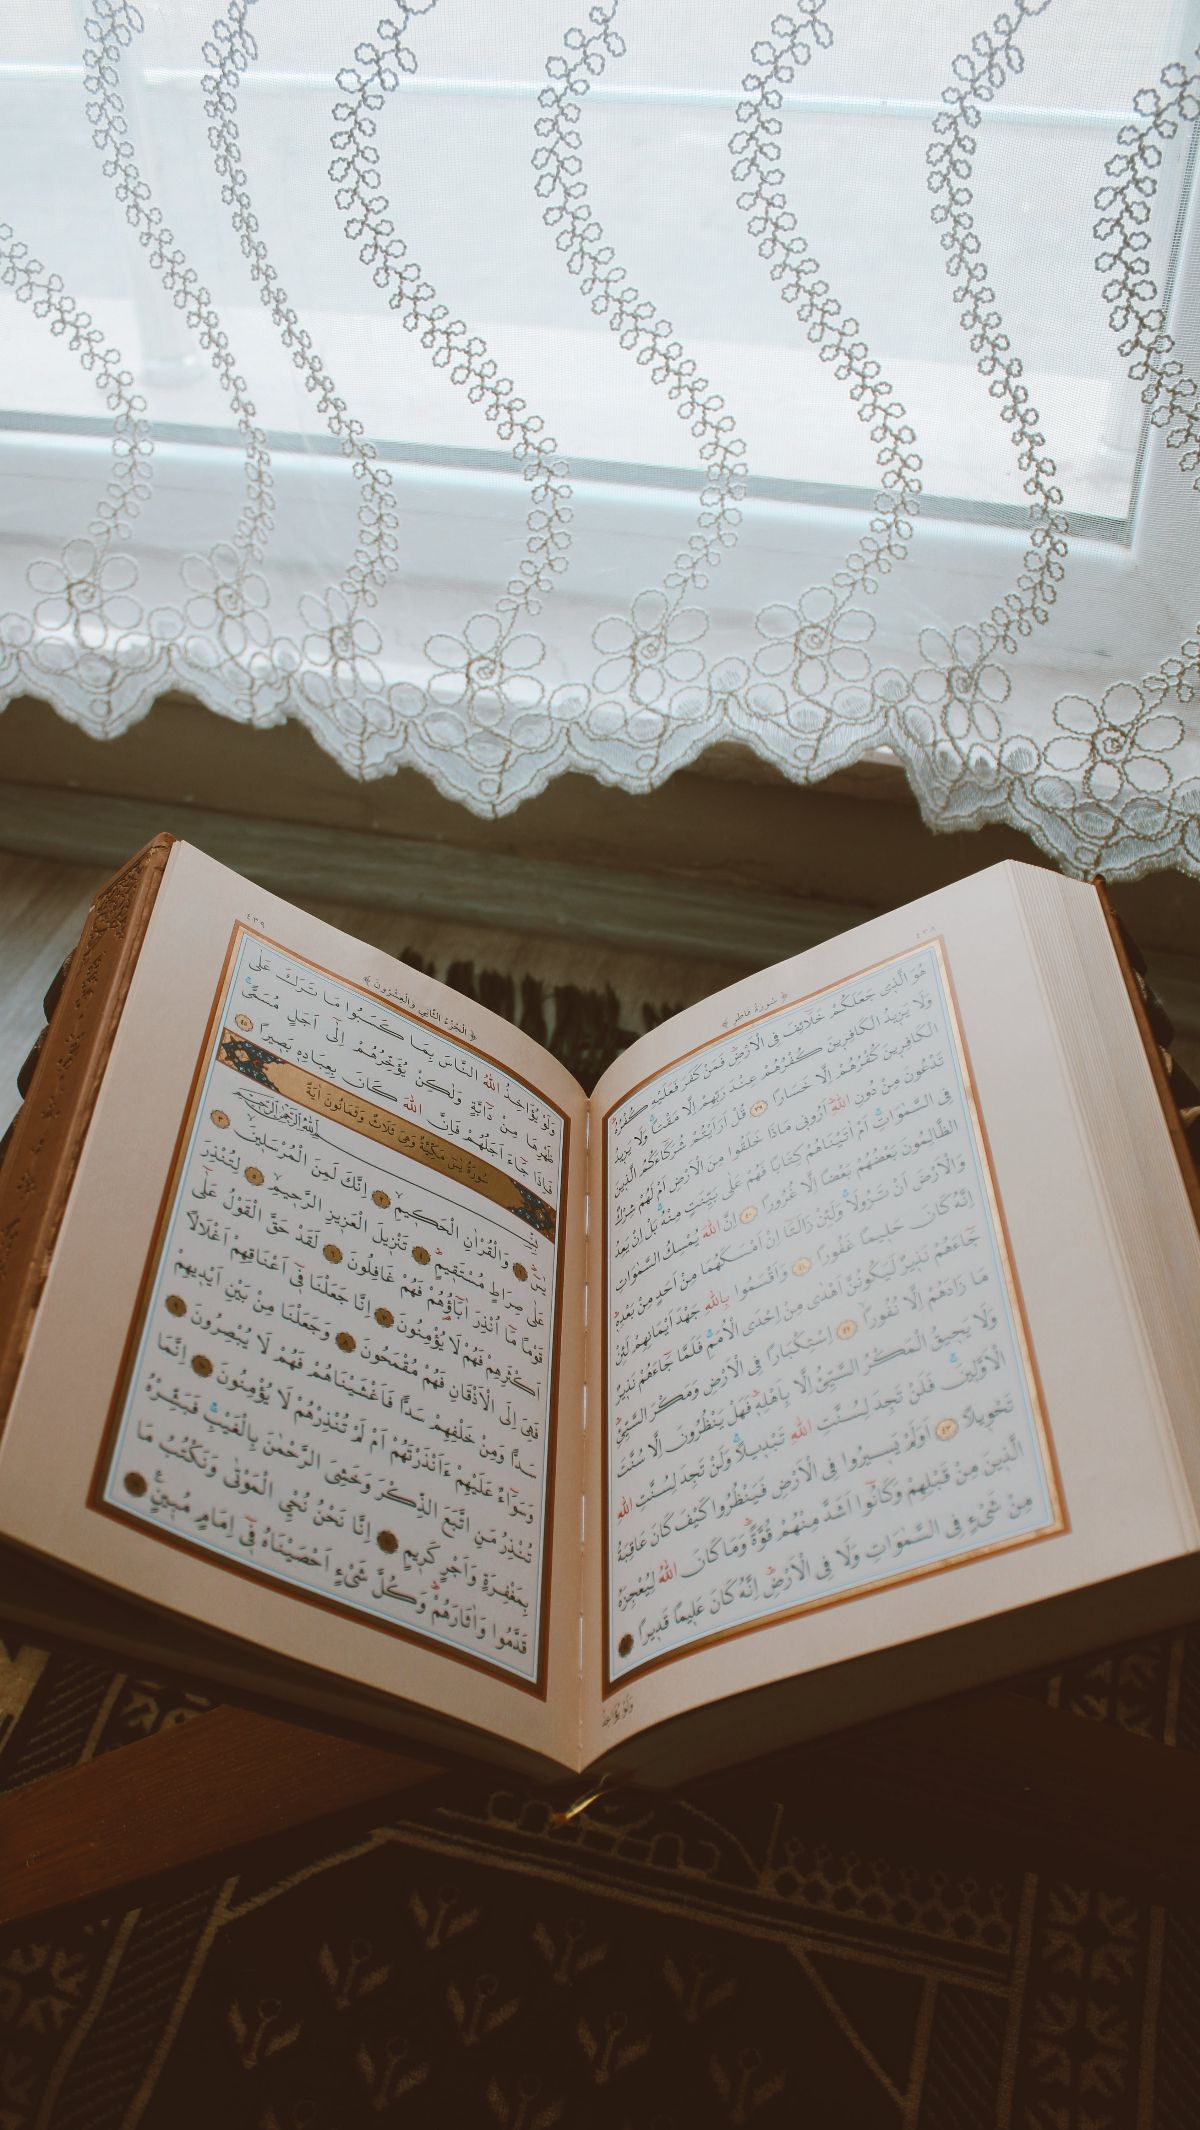 ٤٣٨
﴿ سُورَةُ فَاطِرٍ ﴾
هُوَ الَّذ۪ي جَعَلَكُمْ خَلَٓائِفَ فِي الْاَرْضِۜ فَمَنْ كَفَرَ فَعَلَيْهِ كُفْرُهُۜ
وَلَا يَز۪يدُ الْكَافِر۪ينَ كُفْرُهُمْ عِنْدَ رَبِّهِمْ اِلَّا مَقْتًاۚ وَلَا يَز۪يدُ
الْكَافِر۪ينَ كُفْرُهُمْ اِلَّا خَسَارًا ٣٩ قُلْ اَرَاَيْتُمْ شُرَكَٓاءَكُمُ الَّذ۪ينَ
تَدْعُونَ مِنْ دُونِ اللّٰهِۜ اَرُون۪ي مَاذَا خَلَقُوا مِنَ الْاَرْضِ اَمْ لَهُمْ شِرْكٌ
فِي السَّمٰوَاتِۚ اَمْ اٰتَيْنَاهُمْ كِتَابًا فَهُمْ عَلٰى بَيِّنَتٍ مِنْهُۚ بَلْ اِنْ يَعِدُ
الظَّالِمُونَ بَعْضُهُمْ بَعْضًا اِلَّا غُرُورًا ٤٠ اِنَّ اللّٰهَ يُمْسِكُ السَّمٰوَاتِ
وَالْاَرْضَ اَنْ تَزُولَاۚ وَلَئِنْ زَالَتَٓا اِنْ اَمْسَكَهُمَا مِنْ اَحَدٍ مِنْ بَعْدِه۪ۜ
اِنَّهُ كَانَ حَل۪يمًا غَفُورًا ٤١ وَاَقْسَمُوا بِاللّٰهِ جَهْدَ اَيْمَانِهِمْ لَئِنْ
جَٓاءَهُمْ نَذ۪يرٌ لَيَكُونُنَّ اَهْدٰى مِنْ اِحْدَى الْاُمَمِۚ فَلَمَّا جَٓاءَهُمْ نَذ۪يرٌ
مَا زَادَهُمْ اِلَّا نُفُورًا ٤٢ اِسْتِكْبَارًا فِي الْاَرْضِ وَمَكْرَ السَّيِّئِۜ
وَلَا يَح۪يقُ الْمَكْرُ السَّيِّئُ اِلَّا بِاَهْلِه۪ۜ فَهَلْ يَنْظُرُونَ اِلَّا سُنَّتَ
الْاَوَّل۪ينَۚ فَلَنْ تَجِدَ لِسُنَّتِ اللّٰهِ تَبْد۪يلًاۚ وَلَنْ تَجِدَ لِسُنَّتِ اللّٰهِ
تَحْو۪يلًا ٤٣ اَوَلَمْ يَس۪يرُوا فِي الْاَرْضِ فَيَنْظُرُوا كَيْفَ كَانَ عَاقِبَةُ
الَّذ۪ينَ مِنْ قَبْلِهِمْ وَكَانُٓوا اَشَدَّ مِنْهُمْ قُوَّةًۜ وَمَا كَانَ اللّٰهُ لِيُعْجِزَهُ
مِنْ شَيْءٍ فِي السَّمٰوَاتِ وَلَا فِي الْاَرْضِۜ اِنَّهُ كَانَ عَل۪يمًا قَد۪يرًا
وَلَوْ يُؤَاخِذُ
٤٣٩
﴿ اَلْجُزْءُ الثَّانِي وَالْعِشْرُونَ ﴾
وَلَوْ يُؤَاخِذُ اللّٰهُ النَّاسَ بِمَا كَسَبُوا مَا تَرَكَ عَلٰى
ظَهْرِهَا مِنْ دَٓابَّةٍ وَلٰكِنْ يُؤَخِّرُهُمْ اِلٰٓى اَجَلٍ مُسَمًّىۚ
فَاِذَا جَٓاءَ اَجَلُهُمْ فَاِنَّ اللّٰهَ كَانَ بِعِبَادِه۪ بَص۪يرًا ٤٥
سُورَةُ يٰسٓ مَكِّيَّةٌ وَهِيَ ثَلَاثٌ وَثَمَانُونَ اٰيَةً
بِسْمِ اللّٰهِ الرَّحْمٰنِ الرَّح۪يمِ
يٰسٓۜ ١ وَالْقُرْاٰنِ الْحَك۪يمِۙ ٢ اِنَّكَ لَمِنَ الْمُرْسَل۪ينَۙ ٣
عَلٰى صِرَاطٍ مُسْتَق۪يمٍۜ ٤ تَنْز۪يلَ الْعَز۪يزِ الرَّح۪يمِۙ ٥ لِتُنْذِرَ
قَوْمًا مَٓا اُنْذِرَ اٰبَٓاؤُ۬هُمْ فَهُمْ غَافِلُونَ ٦ لَقَدْ حَقَّ الْقَوْلُ عَلٰٓى
اَكْثَرِهِمْ فَهُمْ لَا يُؤْمِنُونَ ٧ اِنَّا جَعَلْنَا ف۪ٓي اَعْنَاقِهِمْ اَغْلَالًا
فَهِيَ اِلَى الْاَذْقَانِ فَهُمْ مُقْمَحُونَ ٨ وَجَعَلْنَا مِنْ بَيْنِ اَيْد۪يهِمْ
سَدًّا وَمِنْ خَلْفِهِمْ سَدًّا فَاَغْشَيْنَاهُمْ فَهُمْ لَا يُبْصِرُونَ ٩
وَسَوَٓاءٌ عَلَيْهِمْ ءَاَنْذَرْتَهُمْ اَمْ لَمْ تُنْذِرْهُمْ لَا يُؤْمِنُونَ ١٠ اِنَّمَا
تُنْذِرُ مَنِ اتَّبَعَ الذِّكْرَ وَخَشِيَ الرَّحْمٰنَ بِالْغَيْبِۚ فَبَشِّرْهُ
بِمَغْفِرَةٍ وَاَجْرٍ كَر۪يمٍ ١١ اِنَّا نَحْنُ نُحْيِ الْمَوْتٰى وَنَكْتُبُ مَا
قَدَّمُوا وَاٰثَارَهُمْۜ وَكُلَّ شَيْءٍ اَحْصَيْنَاهُ ف۪ٓي اِمَامٍ مُب۪ينٍ۟